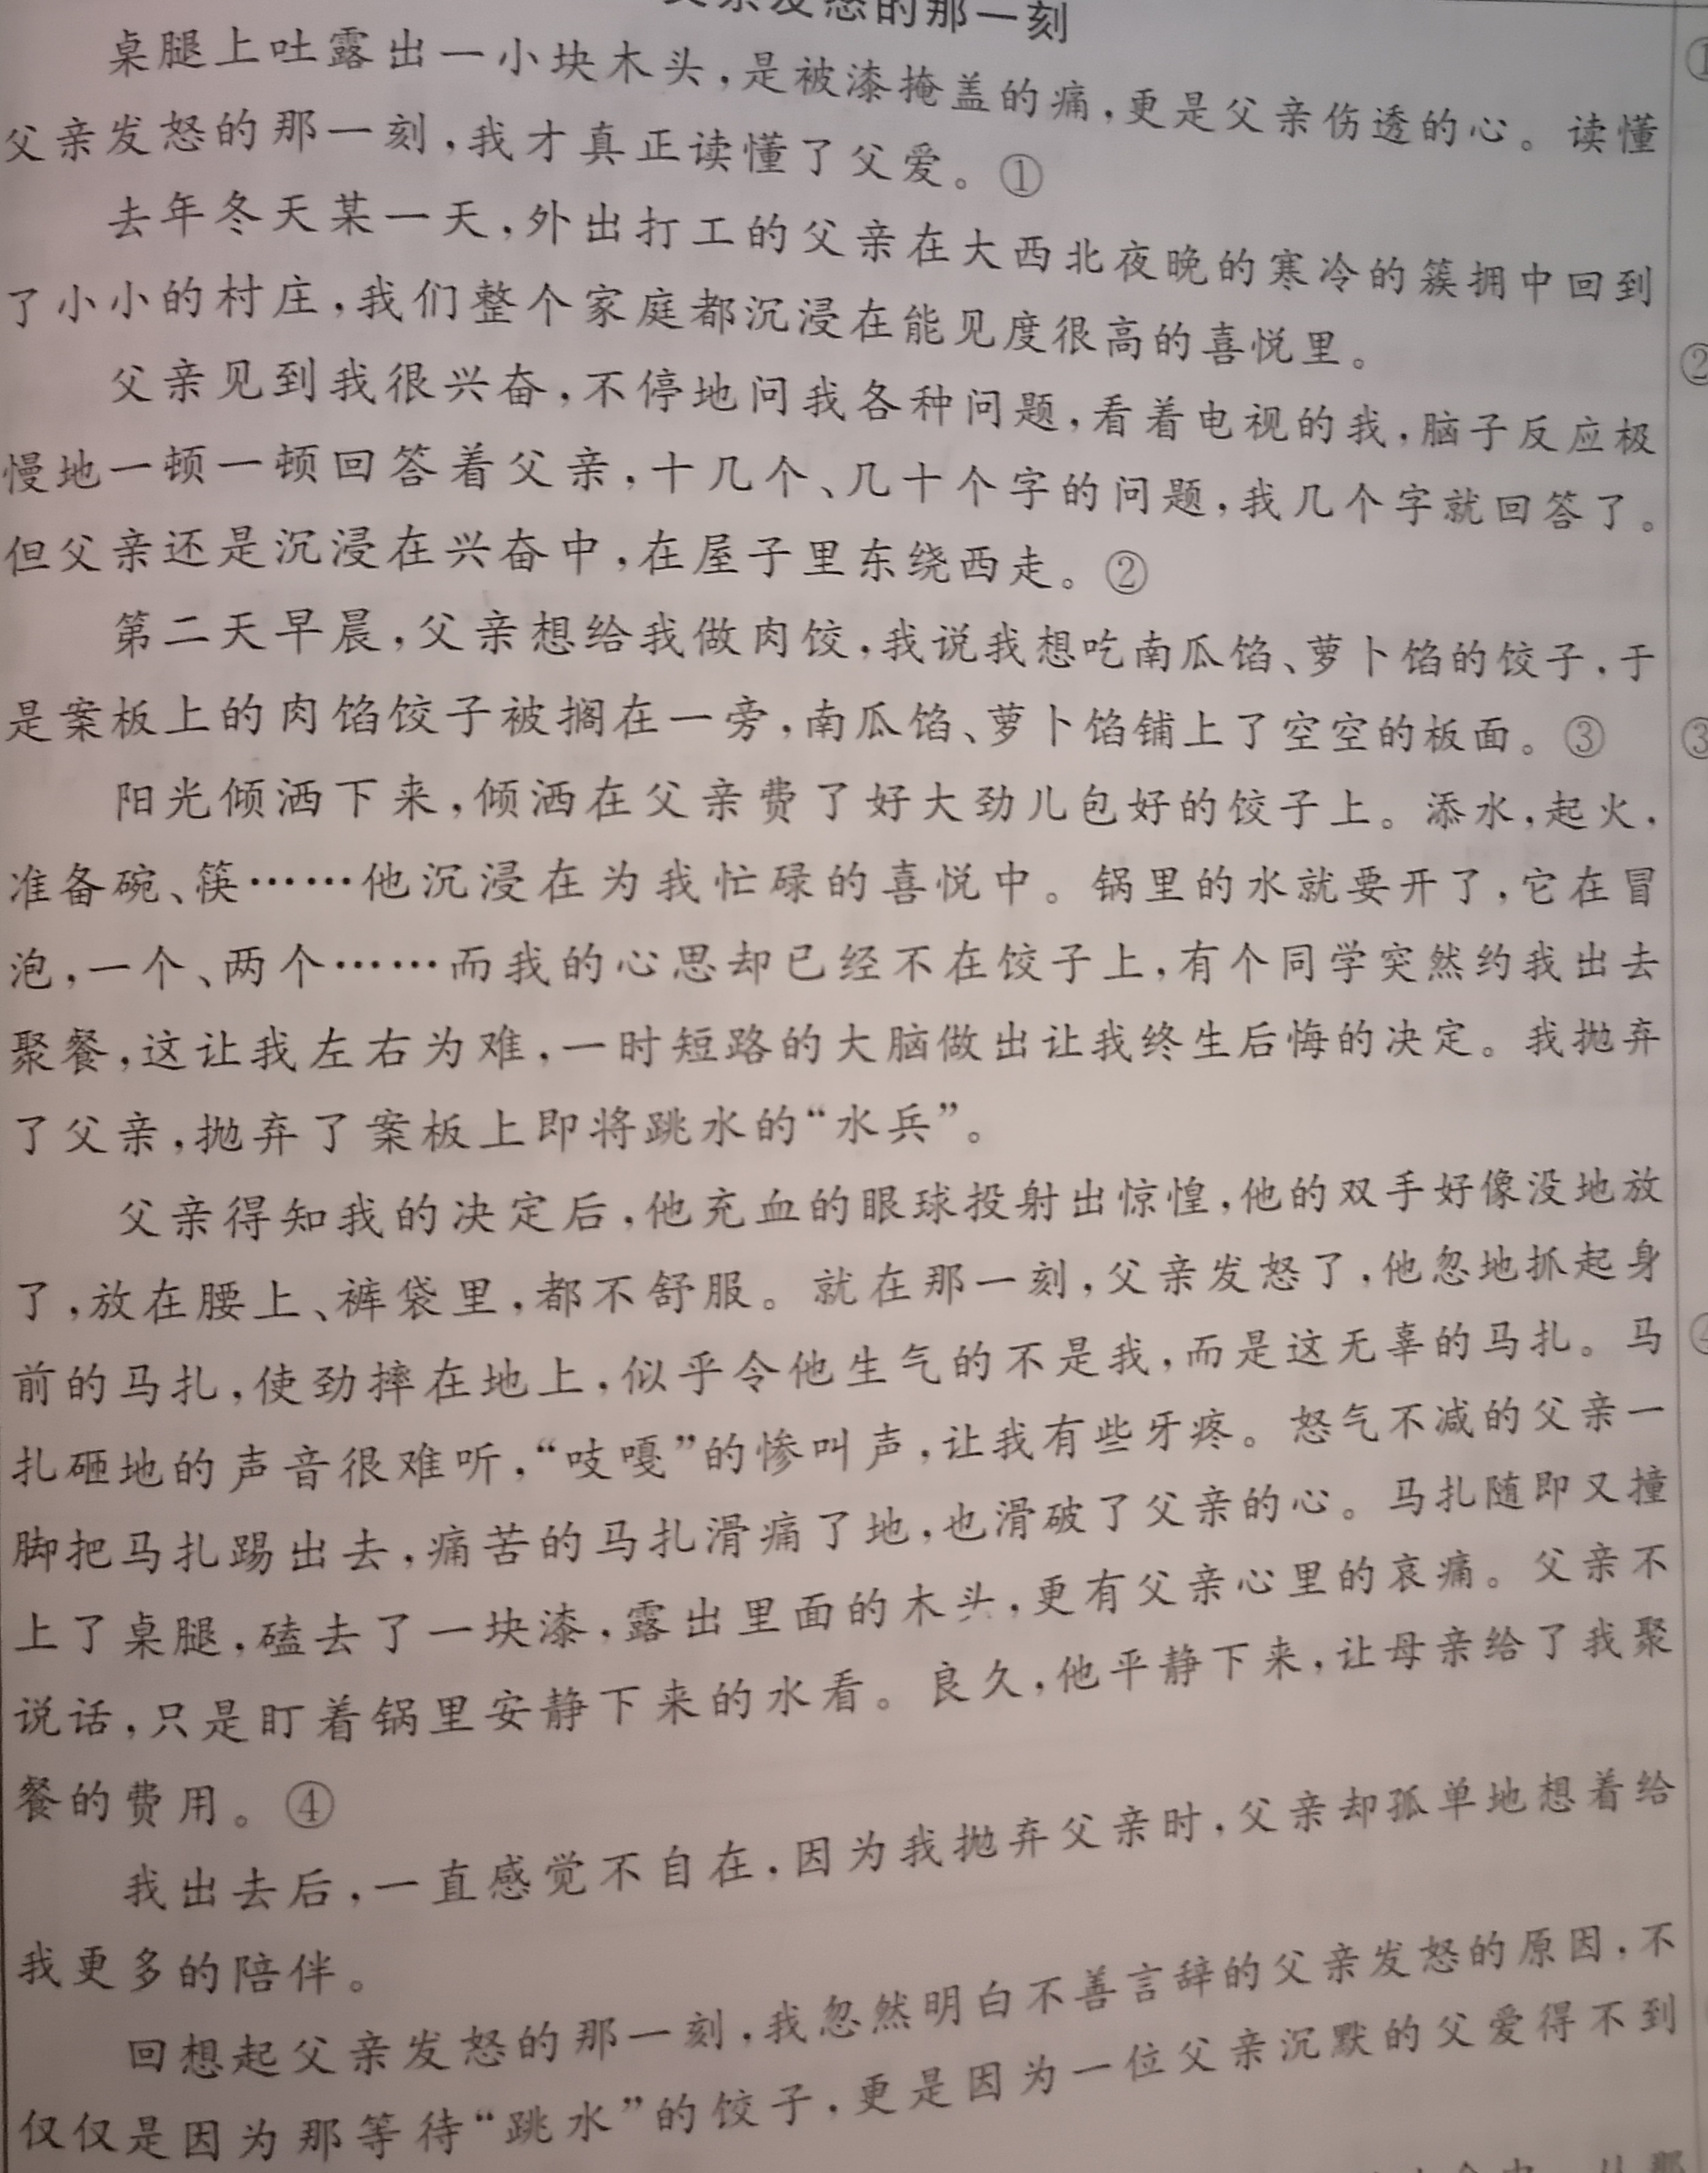 父亲发怒的那一刻
桌腿上吐露出一小块木头,是被漆掩盖的痛,更是父亲伤透的心。读懂
父亲发怒的那一刻,我才真正读懂了父爱。①
去年冬天某一天,外出打工的父亲在大西北夜晚的寒冷的簇拥中回到
了小小的村庄,我们整个家庭都沉浸在能见度很高的喜悦里。
父亲见到我很兴奋,不停地问我各种问题,看着电视的我,脑子反应极
慢地一顿一顿回答着父亲,十几个、几十个字的问题,我几个字就回答了。
但父亲还是沉浸在兴奋中,在屋子里东绕西走。②
第二天早晨,父亲想给我做肉饺,我说我想吃南瓜馅、萝卜馅的饺子,于
是案板上的肉馅饺子被搁在一旁,南瓜馅、萝卜馅铺上了空空的板面。③
阳光倾洒下来,倾洒在父亲费了好大劲儿包好的饺子上。添水,起火,
准备碗、筷……他沉浸在为我忙碌的喜悦中。锅里的水就要开了,它在冒
泡,一个、两个……而我的心思却已经不在饺子上,有个同学突然约我出去
聚餐,这让我左右为难,一时短路的大脑做出让我终生后悔的决定。我抛弃
了父亲,抛弃了案板上即将跳水的“水兵”。
父亲得知我的决定后,他充血的眼球投射出惊惶,他的双手好像没地放
了,放在腰上、裤袋里,都不舒服。就在那一刻,父亲发怒了,他忽地抓起身
前的马扎,使劲摔在地上,似乎令他生气的不是我,而是这无辜的马扎。马
扎砸地的声音很难听,“吱嘎”的惨叫声,让我有些牙疼。怒气不减的父亲一
脚把马扎踢出去,痛苦的马扎滑痛了地,也滑破了父亲的心。马扎随即又撞
上了桌腿,磕去了一块漆,露出里面的木头,更有父亲心里的哀痛。父亲不
说话,只是盯着锅里安静下来的水看。良久,他平静下来,让母亲给了我聚
餐的费用。④
我出去后,一直感觉不自在,因为我抛弃父亲时,父亲却孤单地想着给
我更多的陪伴。
回想起父亲发怒的那一刻,我忽然明白不善言辞的父亲发怒的原因,不
仅仅是因为那等待“跳水”的饺子,更是因为一位父亲沉默的父爱得不到
①
②
③